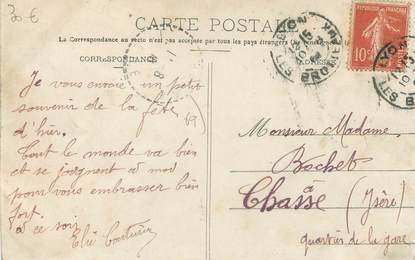 30 €
CARTE POSTALE
La Correspondance au verso n'est pas acceptée par tous les pays étrangers
CORRESPONDANCE
LYON
LES BROTTEAUX
10
Je vous envoie un petit
souvenir de la fête
d'hier. 69
Tout le monde va bien
et se joignent à moi
pour vous embrasser bien
fort.
à ce soir
Monsieur Madame
Bochet
à
Chasse (Isère)
quartier de la gare